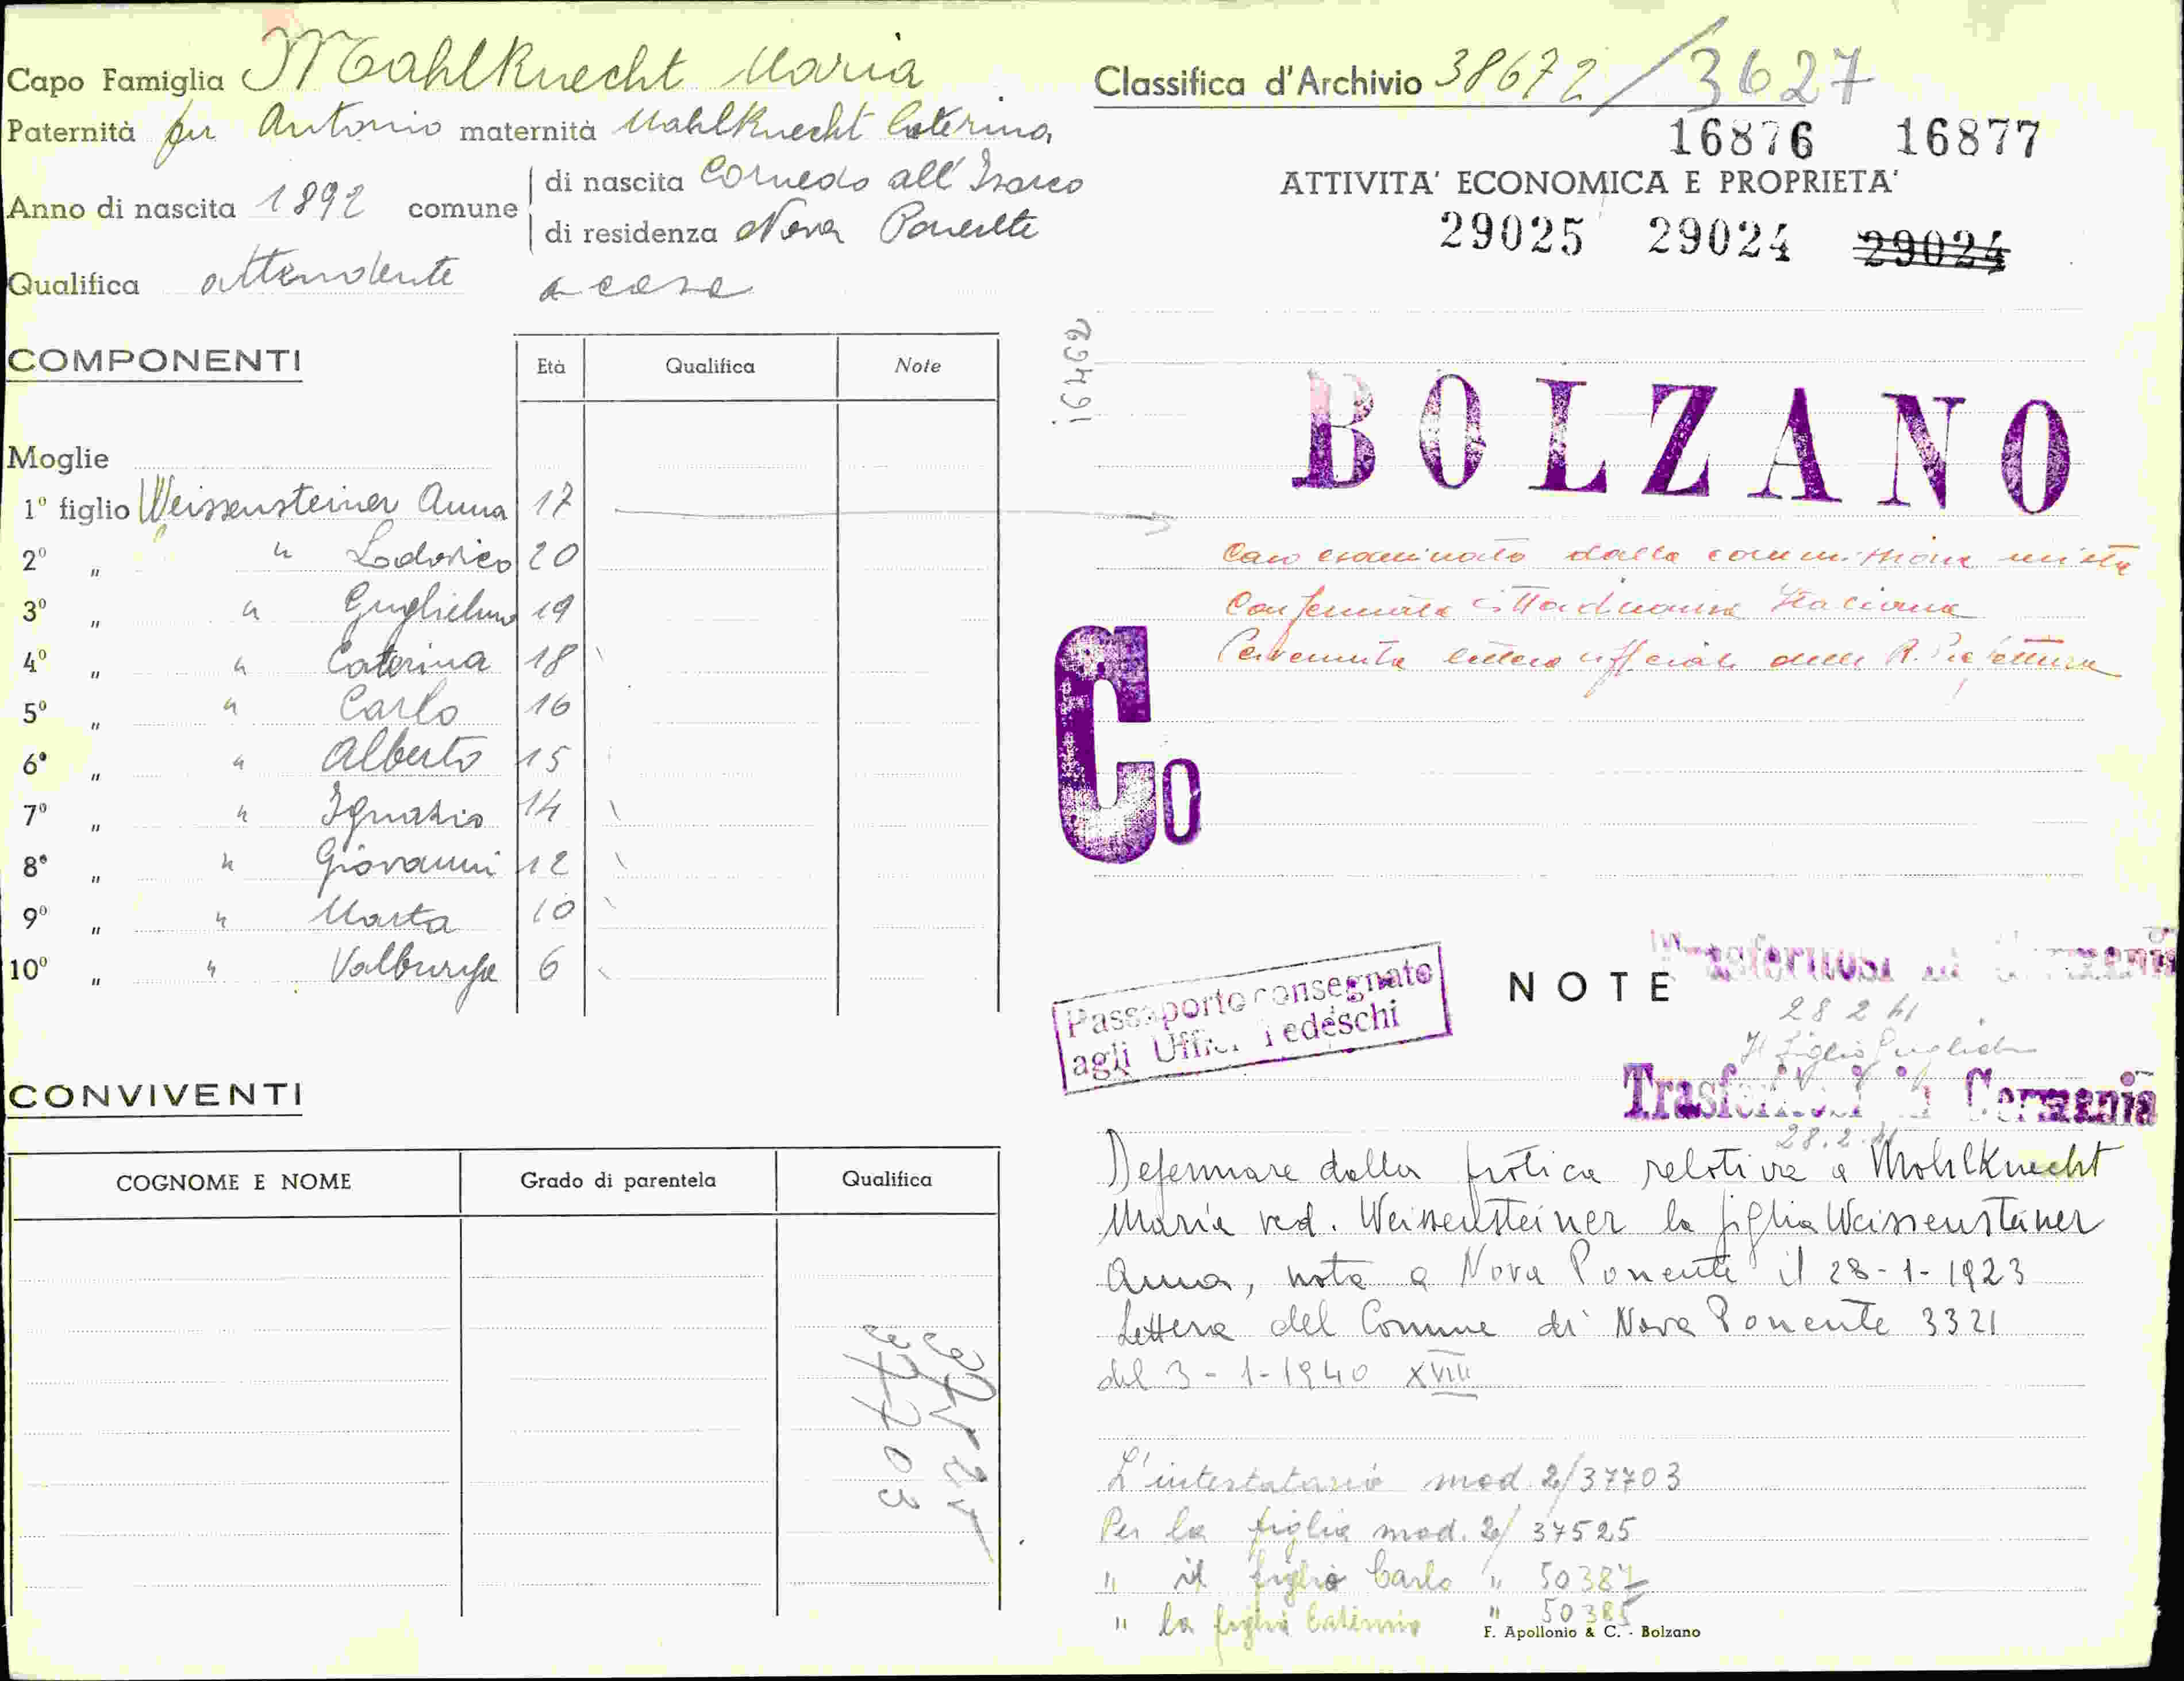 Capo Famiglia Mahlknecht Maria
Paternità fu Antonio maternità Mahlknecht Caterina
Anno di nascita 1892 comune
di nascita Cornedo all'Isarco
di residenza Nova Ponente
Qualifica attendente a casa
COMPONENTI
Età Qualifica Note
Moglie
1º figlio Weissensteiner Anna 17
2º " " Lodovico 20
3º " " Guglielmo 19
4º " " Caterina 18
5º " " Carlo 16
6º " " Alberto 15
7º " " Ignazio 14
8º " " Giovanni 12
9º " " Marta 10
10º " " Valburga 6
CONVIVENTI
COGNOME E NOME Grado di parentela Qualifica
Classifica d'Archivio 38672/3627
16876 16877
ATTIVITA' ECONOMICA E PROPRIETA'
29025 29024 29024
16462
BOLZANO
Caso esaminato dalla commissione mista
Confermata cittadinanza Italiana
Pervenuta lettera ufficiale della R. Prefettura
Co
Passaporto consegnato
agli Uffici Tedeschi
NOTE
Trasferitosi in Germania
28 2 41
Il figlio
Trasferitosi in Germania
28.2.41
Defermare dalla pratica relativa a Mahlknecht
Maria ved. Weissensteiner la figlia Weissensteiner
Anna, nata a Nova Ponente il 28-1-1923
Lettera del Comune di Nova Ponente 3321
del 3-1-1940 XVIII
L'intestatario mod. 2/37703
Per la figlia mod. 2/37525
" il figlio Carlo " 50387
" la figlia Caterina " 50385
F. Apollonio & C. - Bolzano